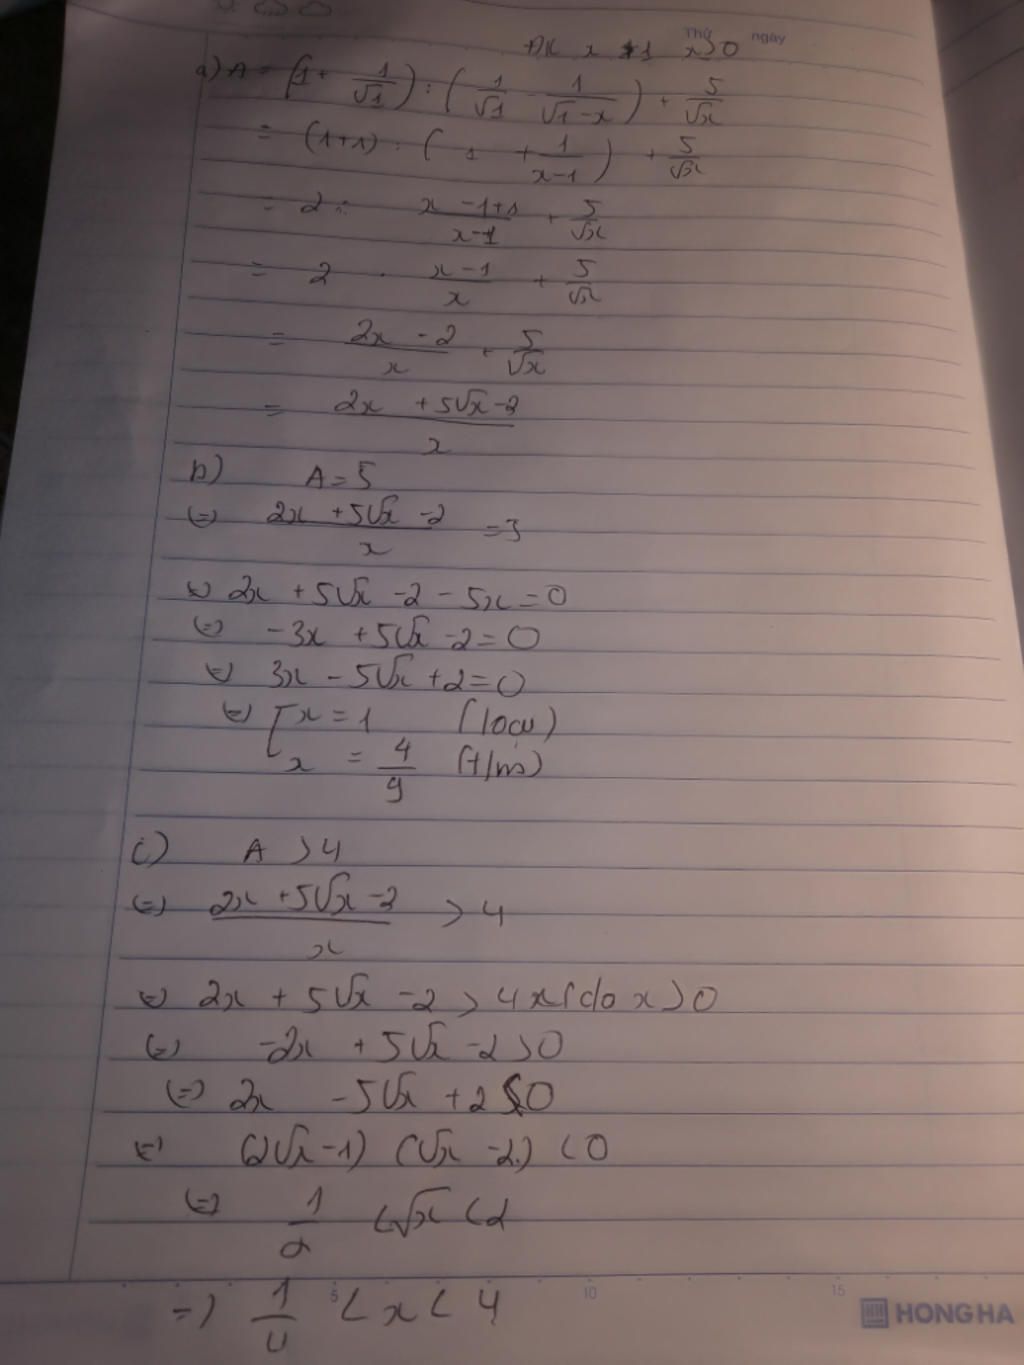 Thứ ngày
ĐK x ≠ 1 x > 0
a) A = (1 + 1/√1) : (1/√1 - 1/(√1-x)) + 5/√x
= (1+1) : (1 + 1/(x-1)) + 5/√x
= 2 : (x-1+1)/(x-1) + 5/√x
= 2 . (x-1)/x + 5/√x
= (2x-2)/x + 5/√x
= (2x + 5√x - 2)/x
b) A = 5
(=) (2x + 5√x - 2)/x = 5
(=) 2x + 5√x - 2 - 5x = 0
(=) -3x + 5√x - 2 = 0
(=) 3x - 5√x + 2 = 0
(=) [ x = 1 (loại)
x = 4/9 (t/m)
c) A > 4
(=) (2x + 5√x - 2)/x > 4
(=) 2x + 5√x - 2 > 4x (do x > 0
(=) -2x + 5√x - 2 > 0
(=) 2x - 5√x + 2 < 0
(=) (2√x - 1) (√x - 2) < 0
(=) 1/2 < √x < 2
=) 1/4 < x < 4
5 10 15
HH HONG HA